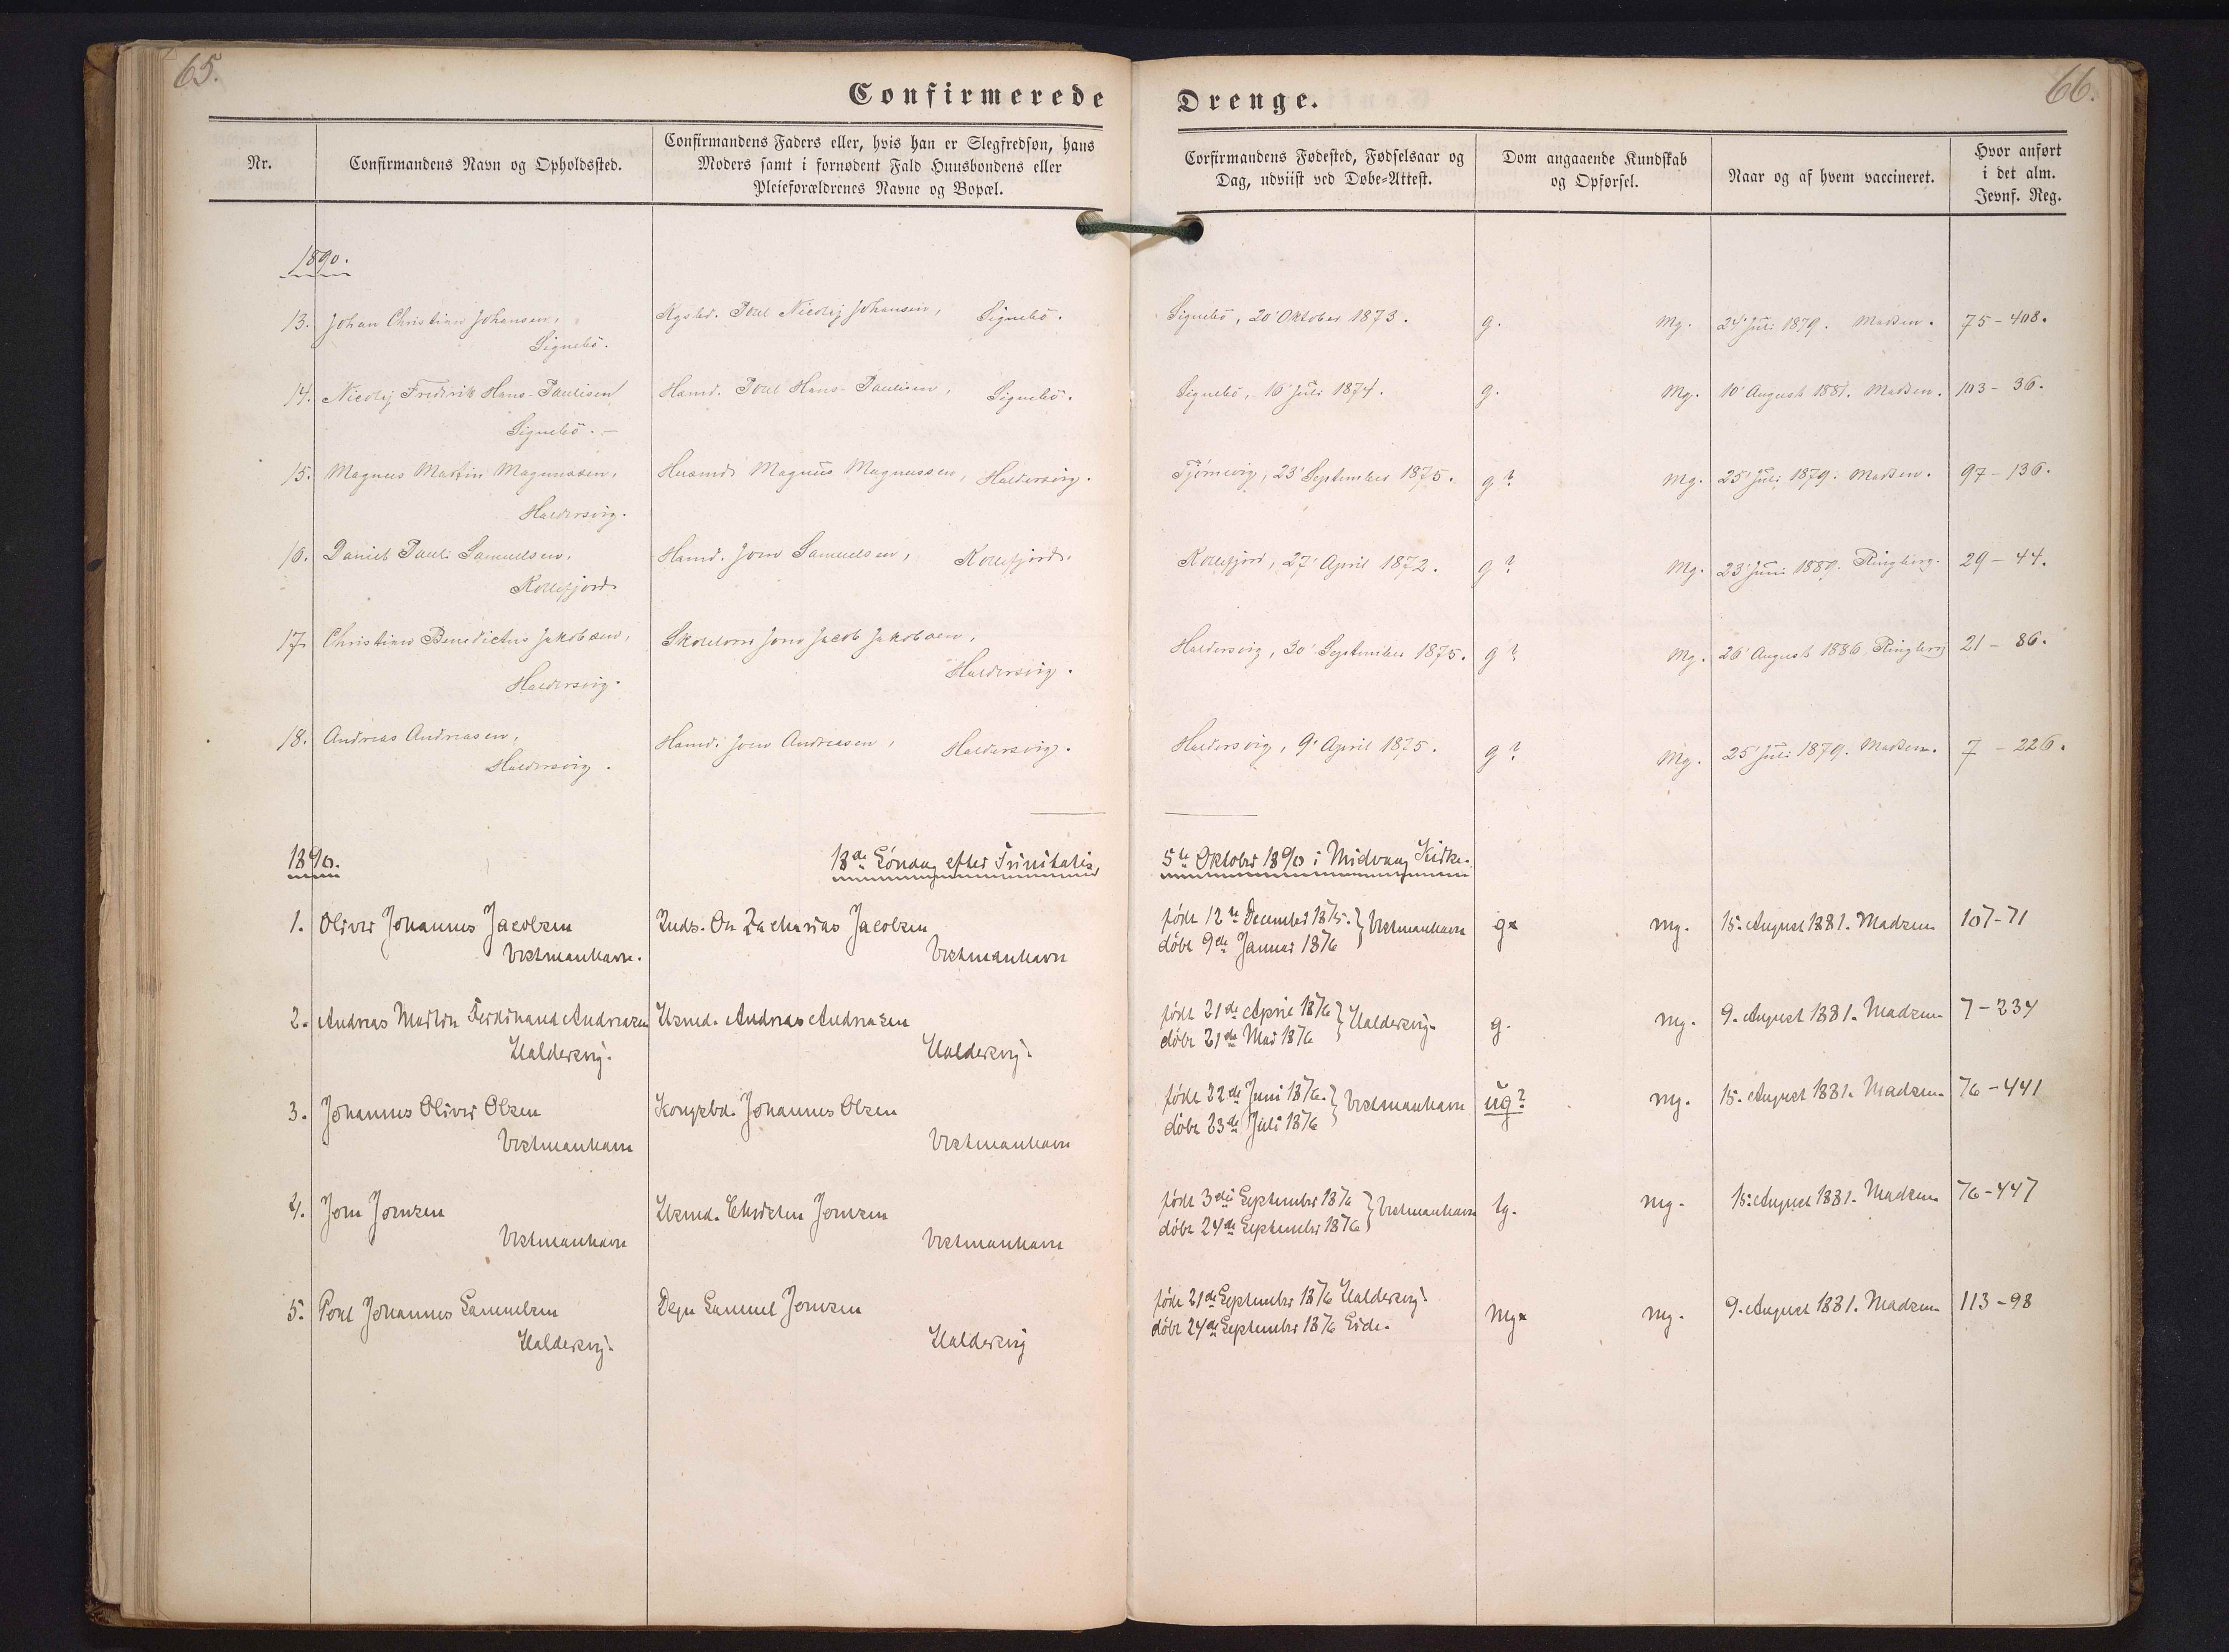 65.
66.
Confirmerede Drenge.
Nr.
Confirmandens Navn og Opholdssted.
Confirmandens Faders eller, hvis han er Slegfredsøn, hans
Moders samt i fornødent Fald Huusbondens eller
Pleieforældrenes Navne og Bopæl.
Corfirmandens Fødested, Fødselsaar og
Dag, udviist ved Døbe-Attest.
Dom angaaende Kundskab
og Opførsel.
Naar og af hvem vaccineret.
Hvor anført
i det alm.
Jevnf. Reg.
1890.
13. Johan Christian Johansen, Kgsbd. Poul Nicolaj Johansen, Signebö. Signebö, 20' Oktober 1873. g. mg. 24' Juli 1879. Madsen. 75-408.
Signebö.
14. Nicolaj Fredrik Hans-Paulisen Hsmd. Poul Hans-Paulisen, Signebö. Signebö, 16' Juli 1874. g. mg. 10' August 1881. Madsen. 103-36.
Signebö.-
15. Magnus Martin Magnussen, Husmd. Magnus Magnussen, Haldersvig. Tjörnevig, 23' September 1875. g? mg. 25' Juli 1879. Madsen. 97-136.
Haldersvig.
16. Daniel Pauli Samuelsen, Hsmd. Joen Samuelsen, Kollefjord. Kollefjord, 27' April 1872. g? mg. 23' Juni 1889. Ringberg. 29-44.
Kollefjord
17. Christian Benedictus Jakobsen, Jacob Jakobsen, Haldersvig, 30' September 1875. g? mg. 26' August 1886 Ringberg 21-86.
Haldersvig. Haldersvig.
18. Andreas Andreasen, Hsmd. Joen Andreasen, Haldersvig. Haldersvig, 9' April 1875. g? mg. 25' Juli 1879. Madsen. 7-226.
Haldersvig.
1890. 18de Söndag efter Trinitatis, 5te Oktober 1890 i Midvaag Kirke.
1. Oliver Johannes Jacobsen Zacharias Jacobsen födt 12te December 1875. } Vestmanhavn g. mg. 15. August 1881. Madsen 107-71
Vestmanhavn. Vestmanhavn döbt 9de Januar 1876
2. Andreas Martin Ferdinand Andreasen Hsmd. Andreas Andreasen födt 21de April 1876 } Haldersvig. g. mg. 9. August 1881. Madsen 7-234
Haldersvig. Haldersvig. döbt 21de Mai 1876
3. Johannes Oliver Olsen Kongsbd. Johannes Olsen födt 22de Juni 1876. } Vestmanhavn ug? mg. 15. August 1881. Madsen 76-441
Vestmanhavn Vestmanhavn döbt 23de Juli 1876
4. Joen Joensen Hsmd. Joensen födt 3die September 1876 } Vestmanhavn tg. mg. 15. August 1881. Madsen 76-447
Vestmanhavn Vestmanhavn döbt 24de September 1876
5. Poul Johannes Samuelsen Degn Samuel Joensen födt 21de September 1876 Haldersvig. mg. mg. 9. August 1881. Madsen 113-98
Haldersvig. Haldersvig döbt 24de September 1876 Eide.